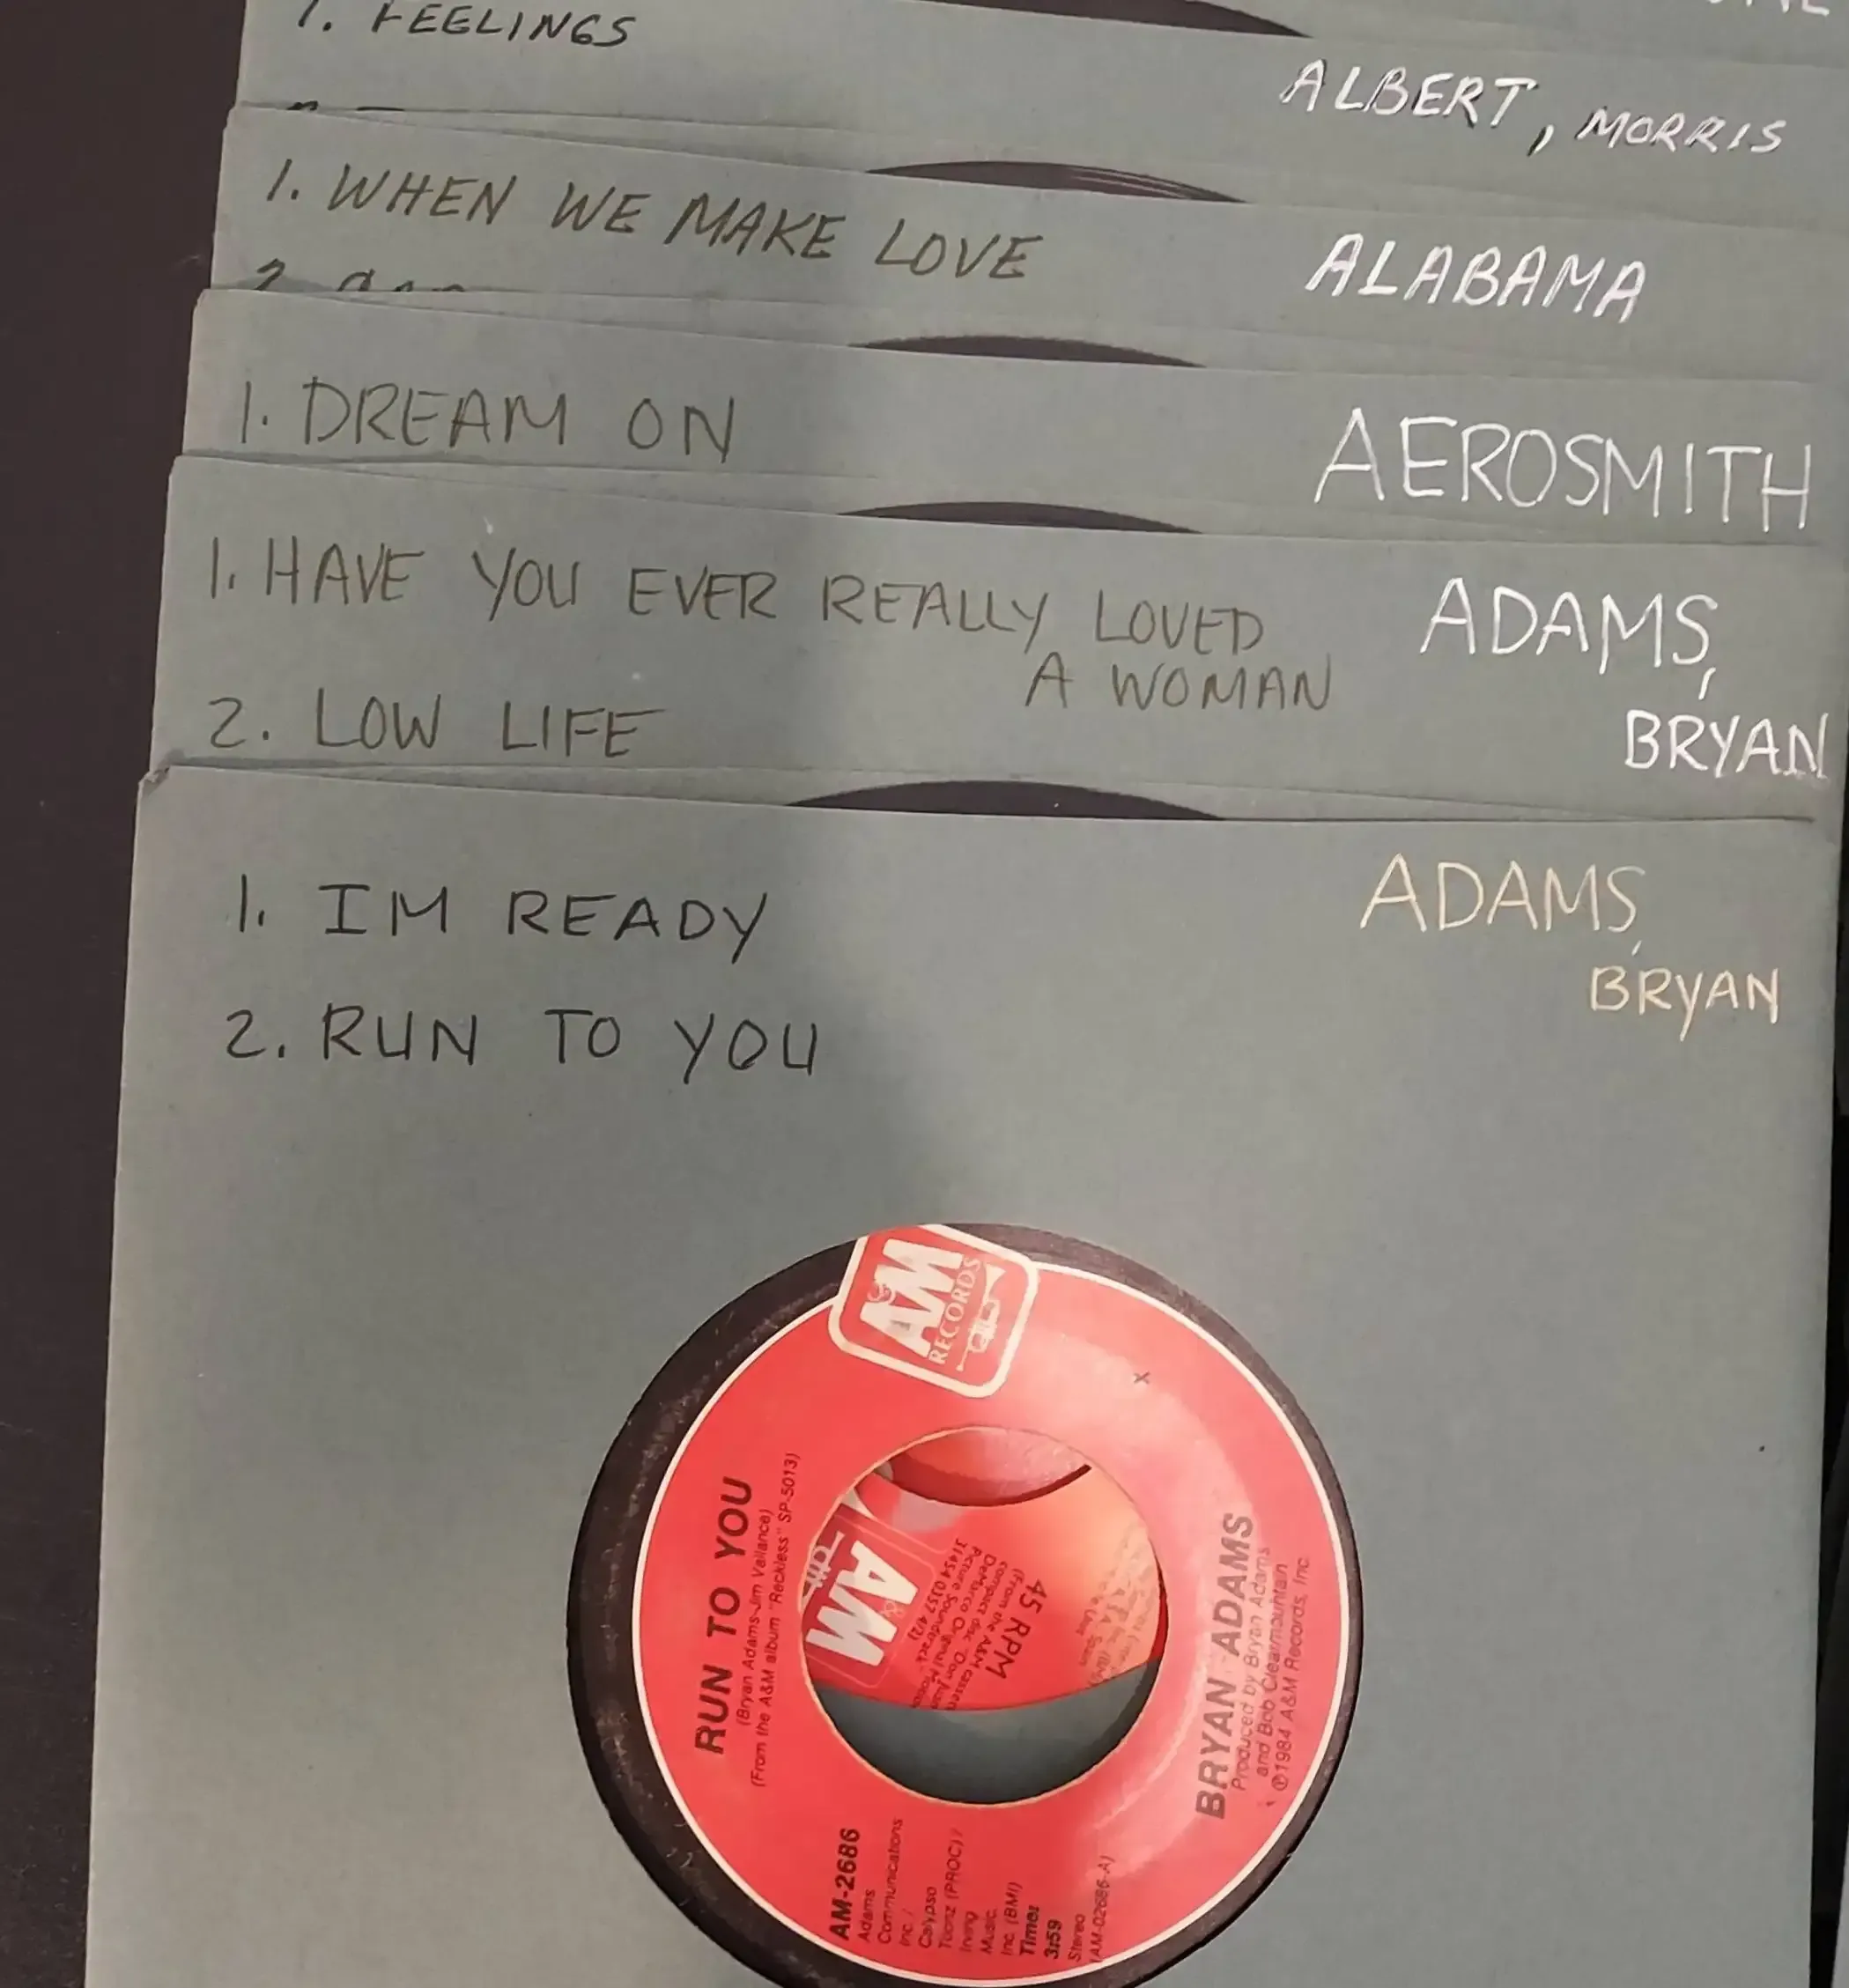 1. FEELINGS
ALBERT, MORRIS
1. WHEN WE MAKE LOVE
ALABAMA
2.
1. DREAM ON
AEROSMITH
1. HAVE YOU EVER REALLY LOVED
A WOMAN
2. LOW LIFE
ADAMS,
BRYAN
1. IM READY
2. RUN TO YOU
ADAMS,
BRYAN
A&M
RECORDS
RUN TO YOU
(Bryan Adams-Jim Vallance)
(From the A&M album "Reckless" SP-5013)
A&M
45 RPM
(From the A&M
compact disc "Don Juan
DeMarco Original
Picture Soundtrack"
31454 0357 4/2)
BRYAN ADAMS
Produced by Bryan Adams
and Bob Clearmountain
℗1984 A&M Records, Inc.
AM-2686
Adams
Communications
Inc./
Calypso
Toonz (PROC)/
Irving
Music,
Inc (BMI)
Time:
3:59
Stereo
(AM-02686-A)